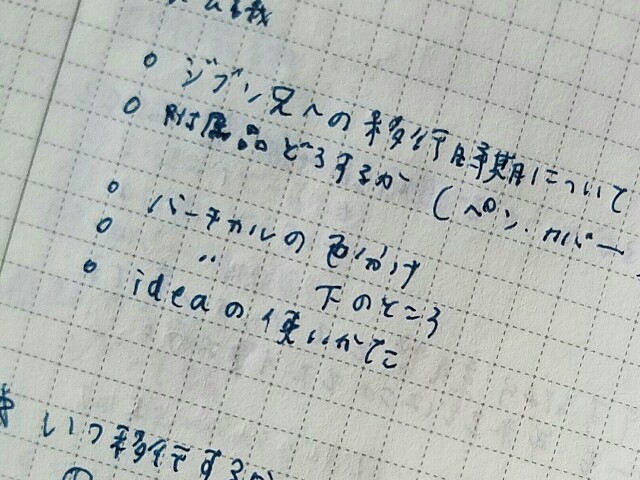 ○ ジブン兄への移行時期について
○ 附属品どうするか (ペン、カバー
○ バーチカルの色分け
○ 〃 下のところ
○ ideaの使いかた
いつ移行するか